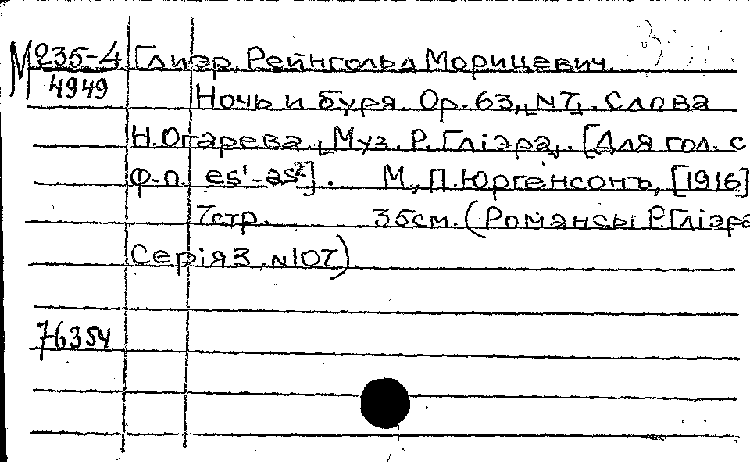 М 235-4 Глиэр, Рейнгольд Морицевич.
4949 Ночь и буря. Op. 63, N7. Слова
Н. Огарева. Муз. Р. Глiэра. [Для гол. с
ф.-п. es¹-as²]. М., П. Юргенсонъ, [1916]
7стр. 35см. (Романсы Р. Глiэра
Серiя 3. N107)
76354